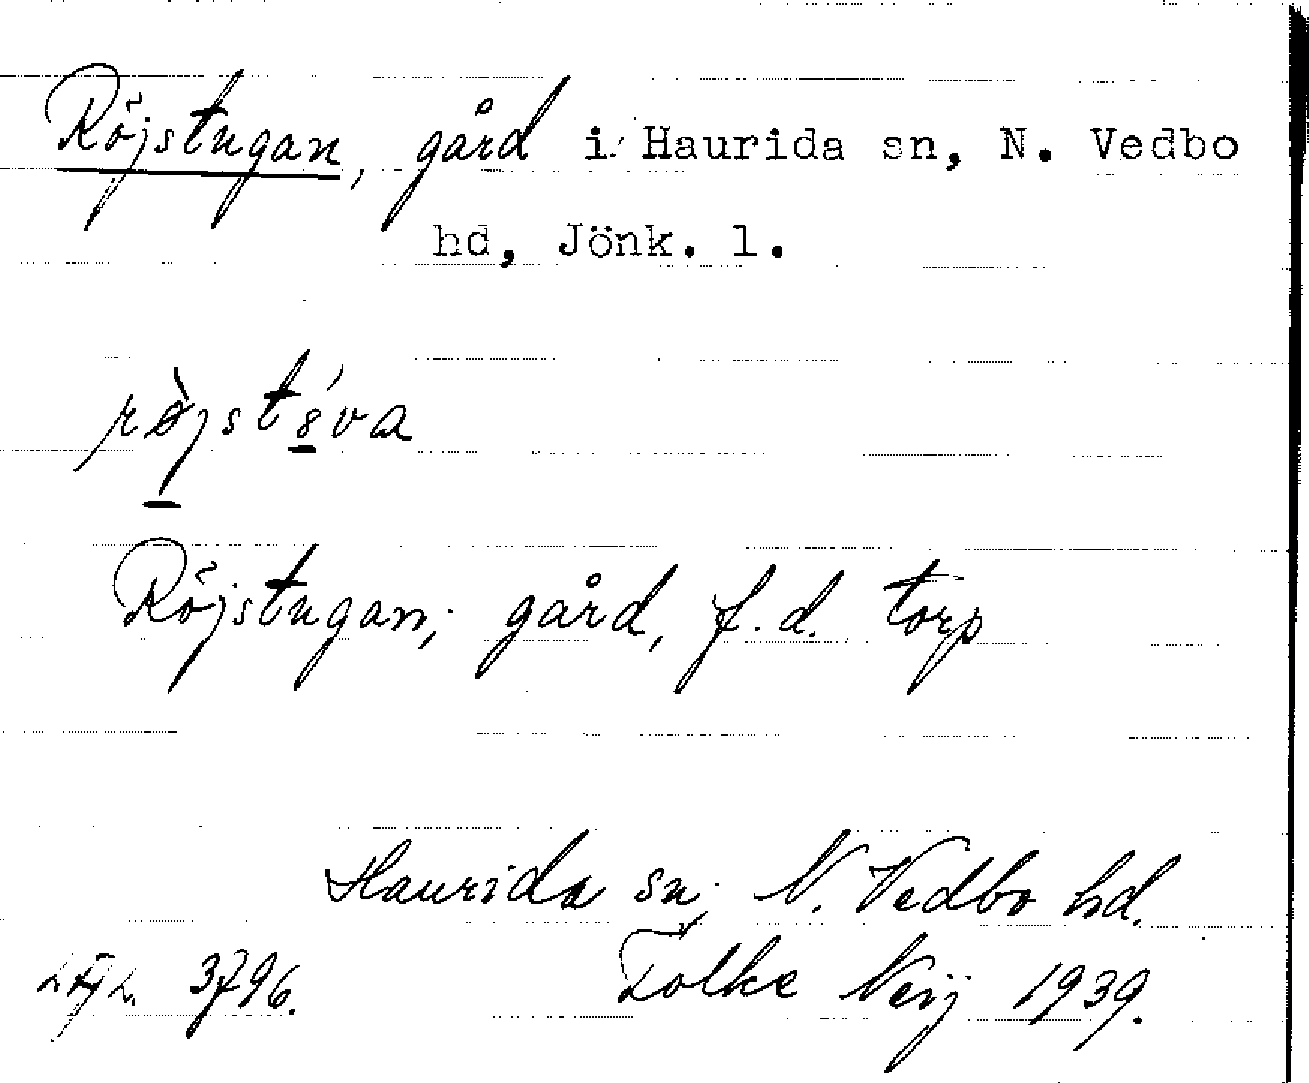 Röjstugan, gård i Haurida sn, N. Vedbo
hd, Jönk. l.
Röjstugan, gård, f.d. torp
Haurida sn, N. Vedbo hd.
3796. Folke Neij 1939.